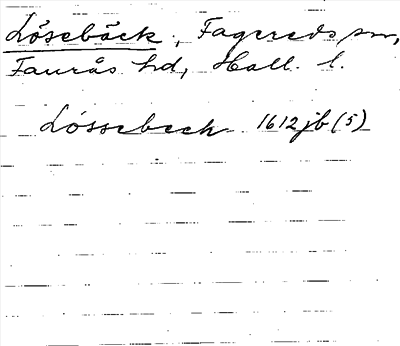 Lösebäck, Fagereds sn,
Faurås hd, Hall. l.
Lössebech 1612 jb (5)